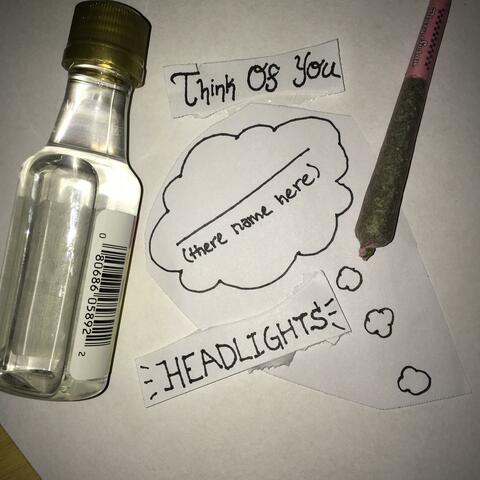 Think Of You
(there name here)
HEADLIGHTS
0 80686 05892 2